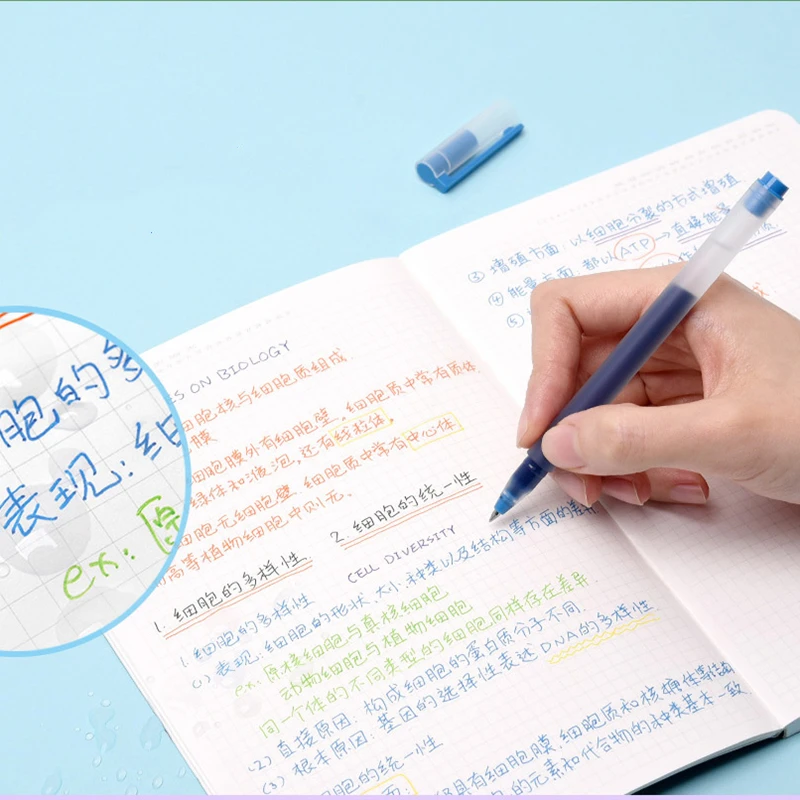 ③ 增殖方面: 以细胞分裂的方式增殖
④ 能量方面: 都以ATP→直接能量
⑤
ES ON BIOLOGY
细胞核与细胞质组成.
膜
细胞膜外有细胞壁. 细胞质中常有质体,
绿体和液泡,还有线粒体,
细胞无细胞壁. 细胞质中常有中心体
高等植物细胞中则无.
2. 细胞的统一性
CELL DIVERSITY
1. 细胞的多样性
1. 细胞的多样性
(1) 表现: 细胞的形状、大小、种类以及结构等方面的差异
ex: 原核细胞与真核细胞
动物细胞与植物细胞
同一个体的不同类型的细胞同样存在差异.
(2) 直接原因: 构成细胞的蛋白质分子不同.
(3) 根本原因: 基因的选择性表达 DNA的多样性
细胞的统一性
具有细胞膜.细胞质和核
的元素和化合物的种类基本一致.
胞的多
表现: 细
ex: 原